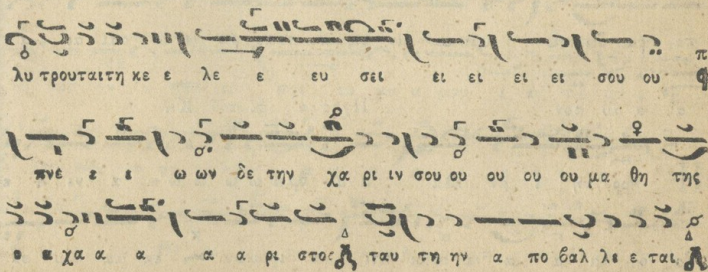 λυ τρουταιτη κε ε λε ε ευ σει ει ει ει ει σου ου
πνε ε ε ω ων δε την χα ρι ιν σου ου ου ου ου μα θη της
ο α χα α α α α ρι στος ταυ τη ην α πο βαλ λε ε ται